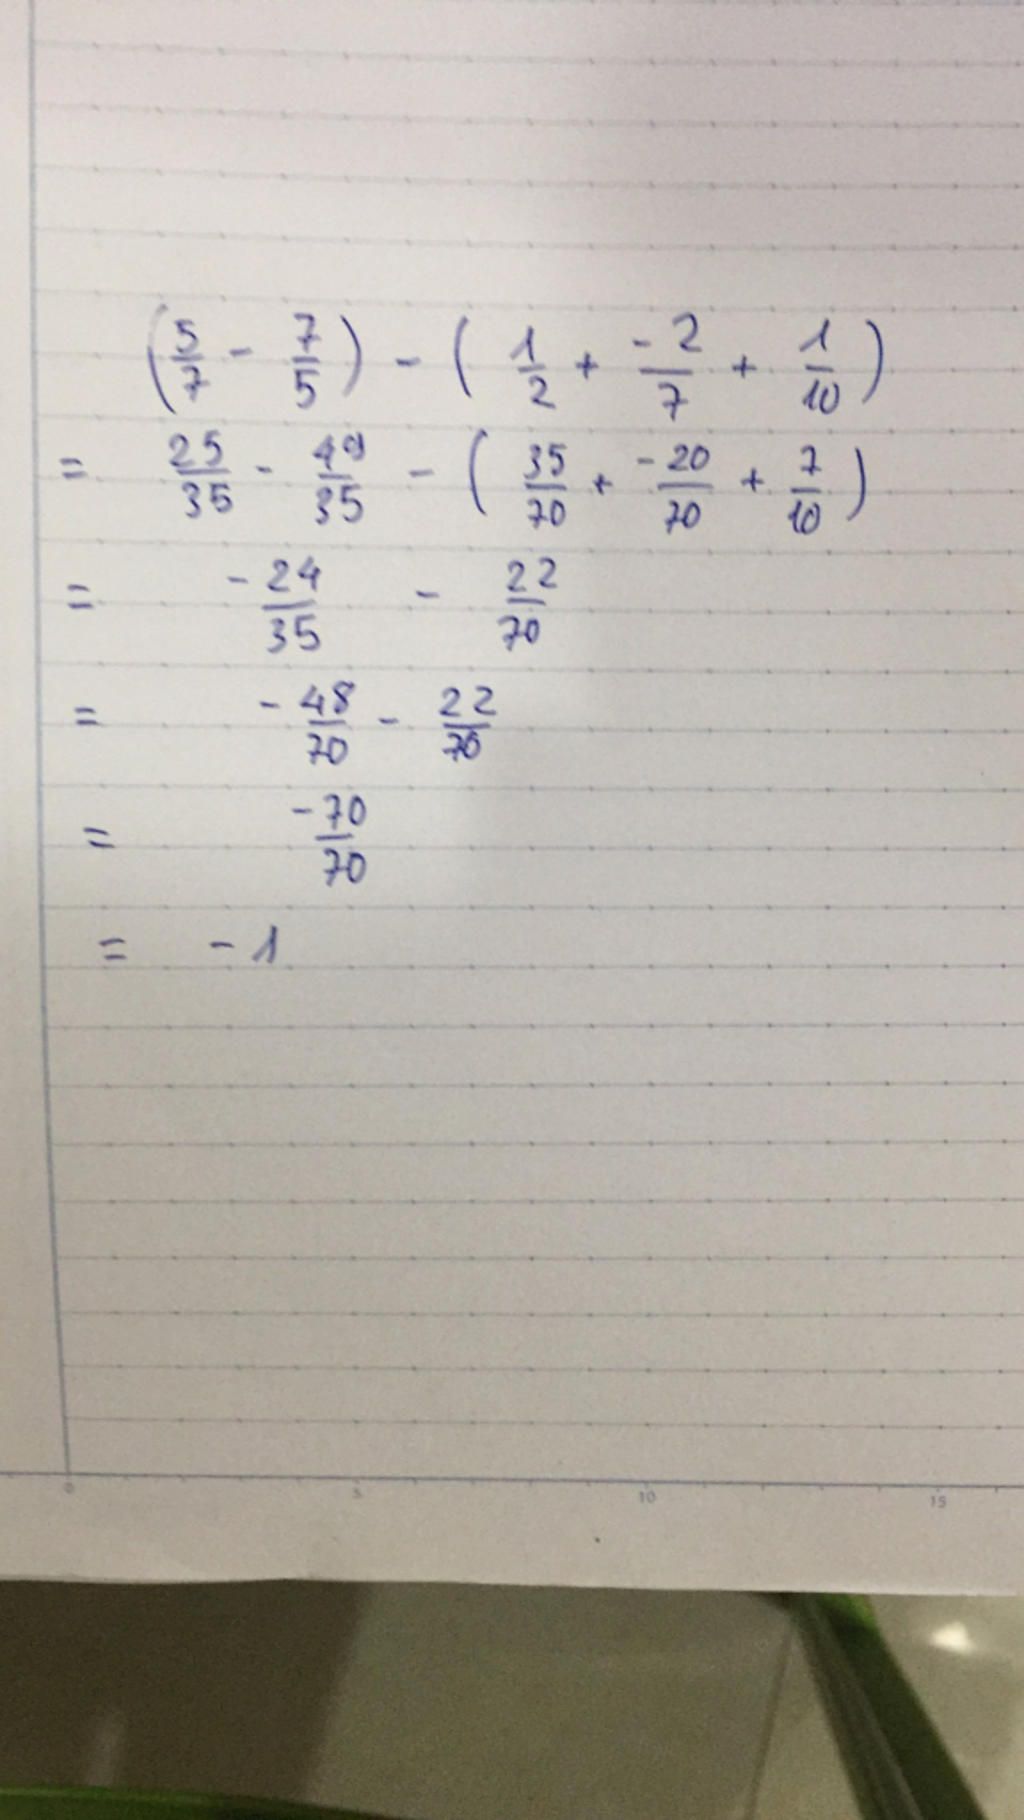 (5/7 - 7/5) - (1/2 + -2/7 + 1/10)
= 25/35 - 49/35 - (35/70 + -20/70 + 7/10)
= -24/35 - 22/70
= -48/70 - 22/70
= -70/70
= -1
0 5 10 15